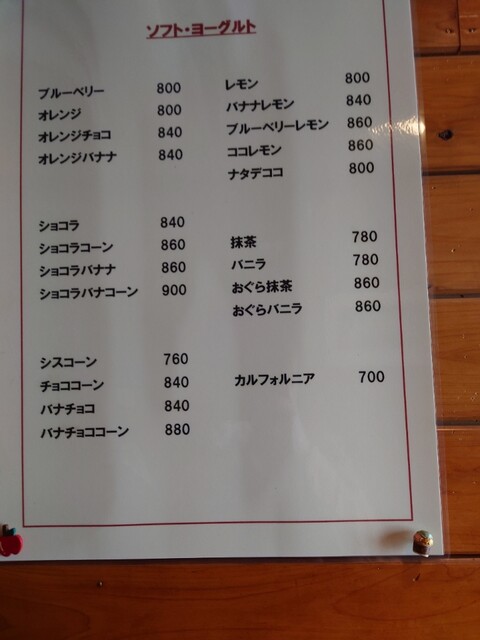 ソフト・ヨーグルト
ブルーベリー 800
オレンジ 800
オレンジチョコ 840
オレンジバナナ 840
ショコラ 840
ショコラコーン 860
ショコラバナナ 860
ショコラバナコーン 900
シスコーン 760
チョココーン 840
バナチョコ 840
バナチョココーン 880
レモン 800
バナナレモン 840
ブルーベリーレモン 860
ココレモン 860
ナタデココ 800
抹茶 780
バニラ 780
おぐら抹茶 860
おぐらバニラ 860
カルフォルニア 700